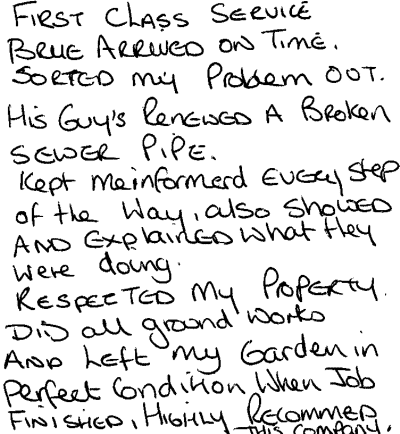 First Class Service
Brue Arrived on Time.
Sorted my Problem oot.
His Guy's Renewed A Broken
Sewer Pipe.
Kept meinformerd Every Step
of the Way, also Showed
And Explained what they
were doing.
Respected my Property.
Did all ground works
And Left my Garden in
Perfect Condition When Job
Finished, Highly Recommed
this company.